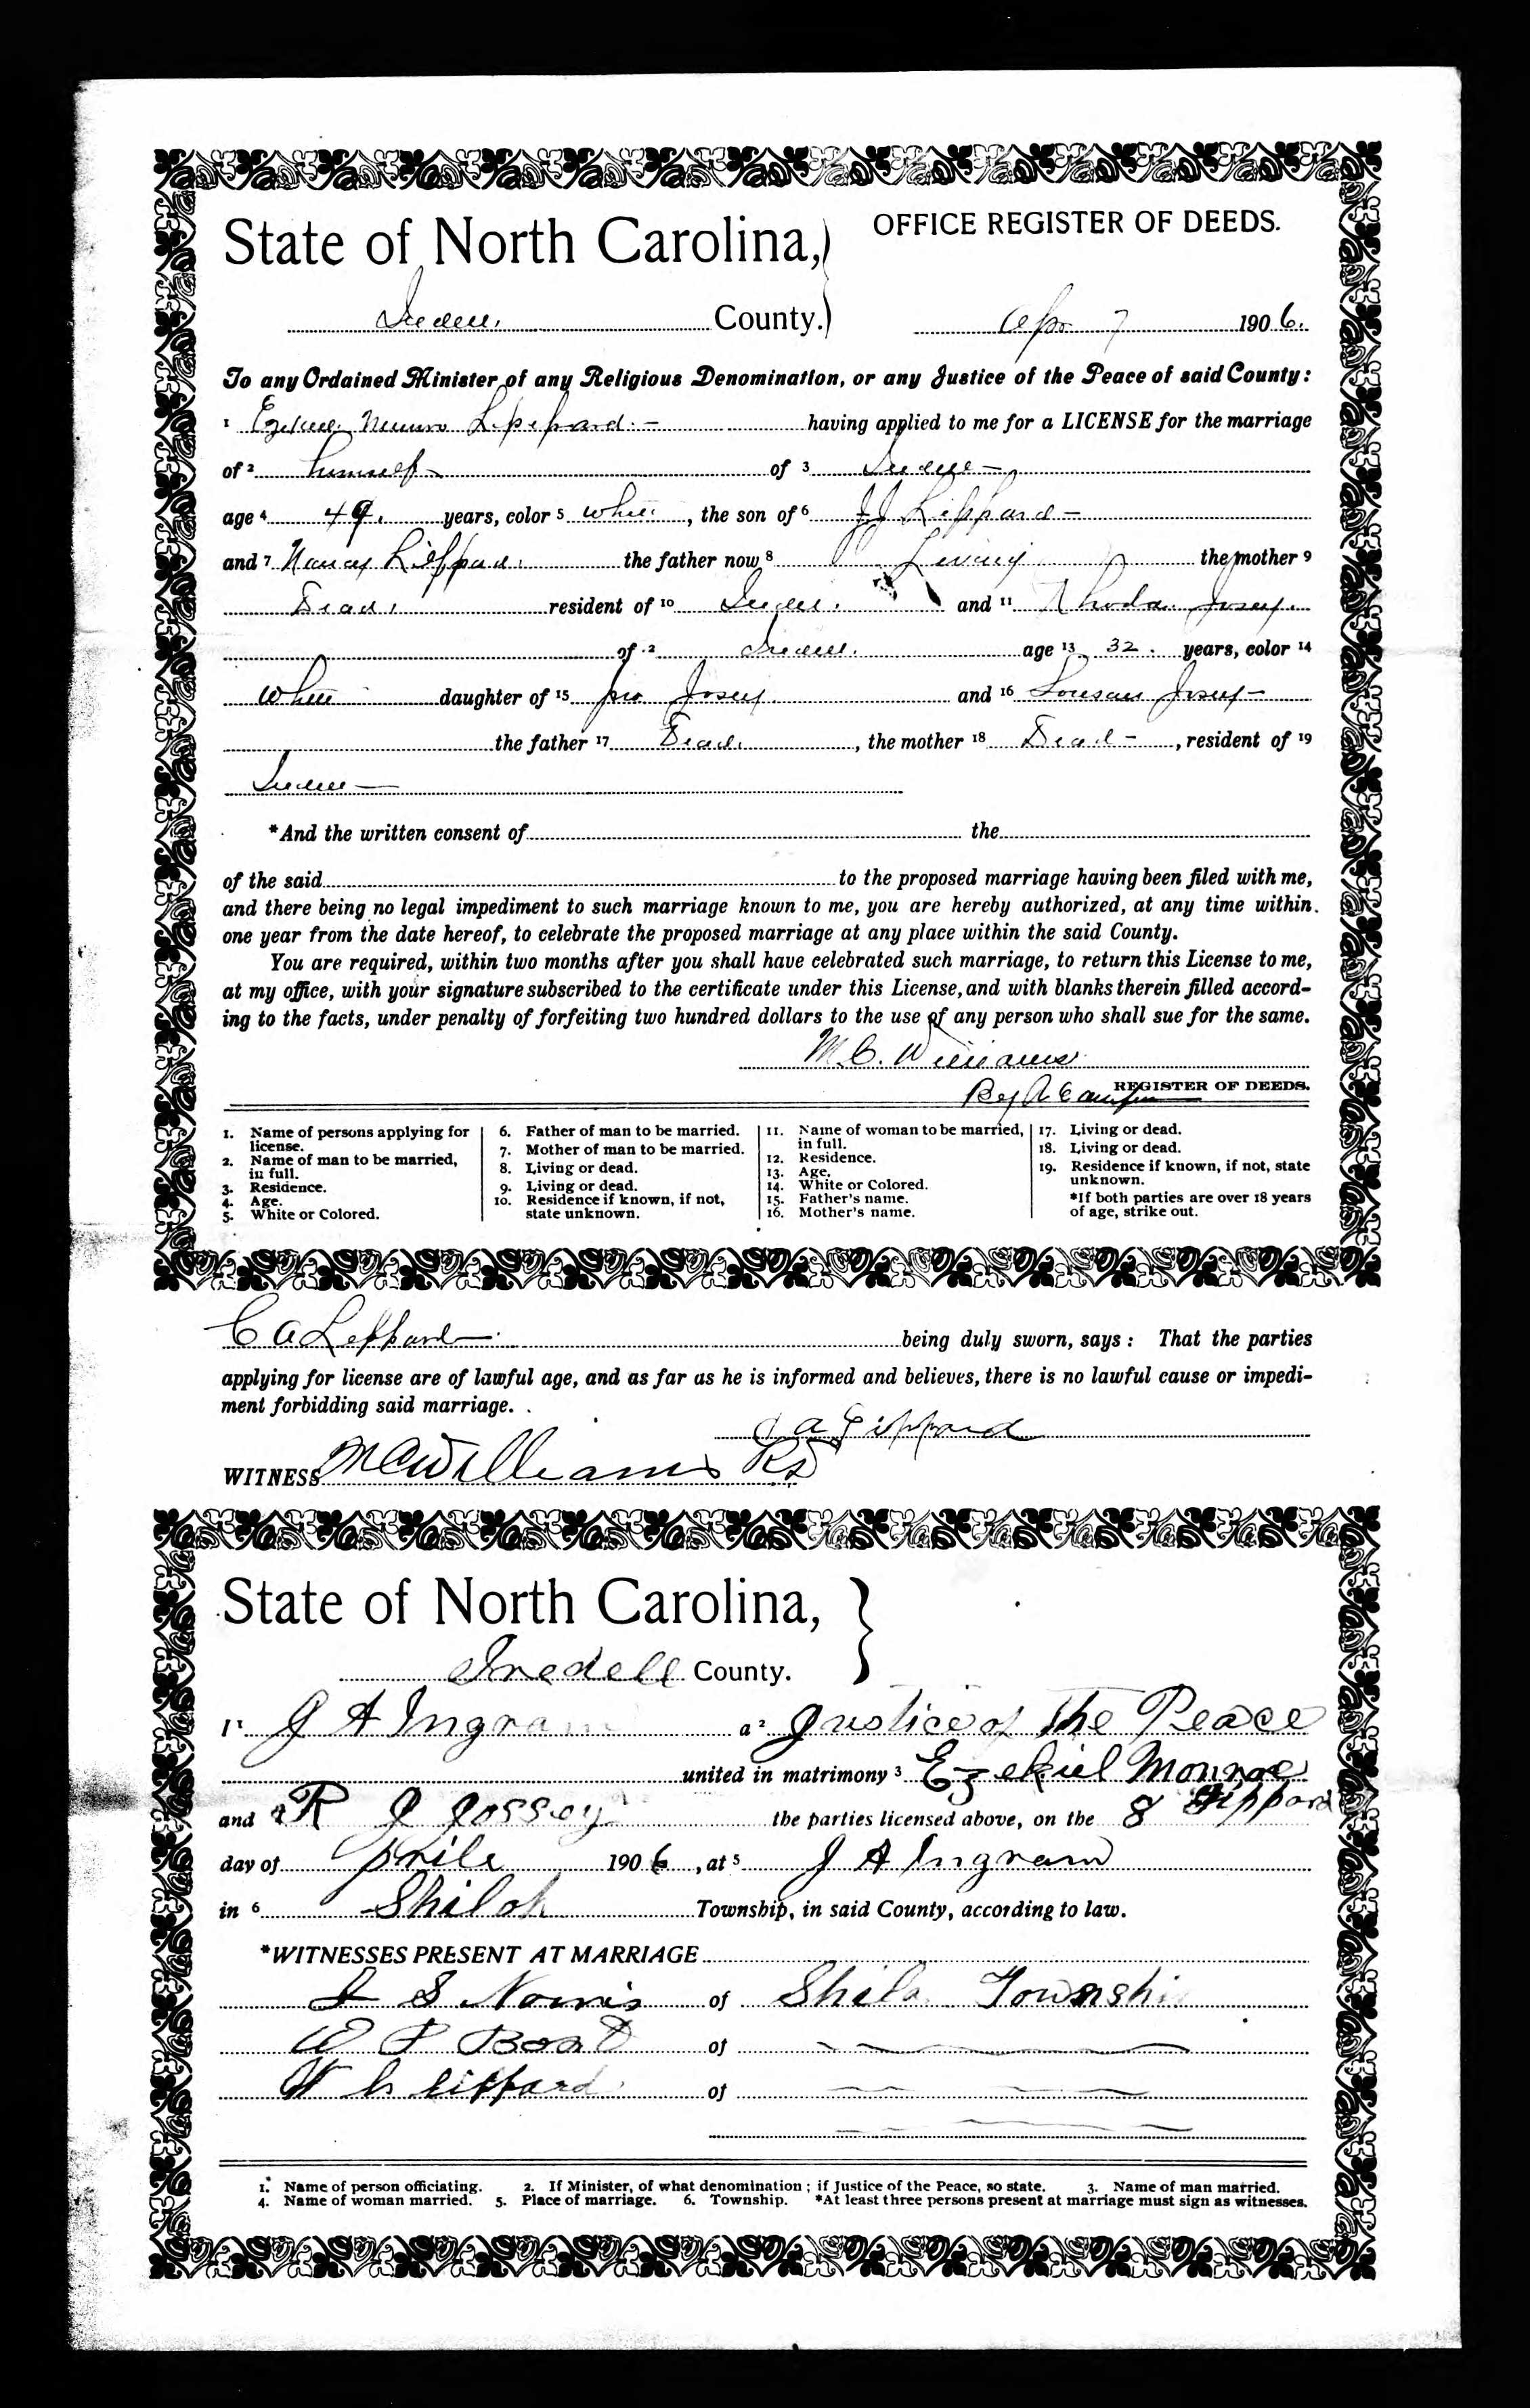 State of North Carolina, OFFICE REGISTER OF DEEDS.
Iredell County. Apr 7 1906.
To any Ordained Minister of any Religious Denomination, or any Justice of the Peace of said County:
1 Ezekiel Lippard. having applied to me for a LICENSE for the marriage
of 2 himself of 3 Iredell
age 4 49. years, color 5 White, the son of 6 J J Lippard
and 7 Nancy Lippard. the father now 8 Living the mother 9
Dead. resident of 10 Iredell. and 11 Rhoda Josey.
of 12 Iredell. age 13 32. years, color 14
White daughter of 15 Jno Josey. and 16 Josey
the father 17 Dead., the mother 18 Dead, resident of 19
Iredell
*And the written consent of the
of the said to the proposed marriage having been filed with me,
and there being no legal impediment to such marriage known to me, you are hereby authorized, at any time within
one year from the date hereof, to celebrate the proposed marriage at any place within the said County.
You are required, within two months after you shall have celebrated such marriage, to return this License to me,
at my office, with your signature subscribed to the certificate under this License, and with blanks therein filled accord-
ing to the facts, under penalty of forfeiting two hundred dollars to the use of any person who shall sue for the same.
M.C. Williams
By REGISTER OF DEEDS.
1. Name of persons applying for license.
2. Name of man to be married, in full.
3. Residence.
4. Age.
5. White or Colored.
6. Father of man to be married.
7. Mother of man to be married.
8. Living or dead.
9. Living or dead.
10. Residence if known, if not, state unknown.
11. Name of woman to be married, in full.
12. Residence.
13. Age.
14. White or Colored.
15. Father's name.
16. Mother's name.
17. Living or dead.
18. Living or dead.
19. Residence if known, if not, state unknown.
*If both parties are over 18 years of age, strike out.
C A Lippard being duly sworn, says: That the parties
applying for license are of lawful age, and as far as he is informed and believes, there is no lawful cause or impedi-
ment forbidding said marriage.
C A Lippard
WITNESS M C Williams Rd
State of North Carolina,
Iredell County.
1 J A Ingram a 2 Justice of The Peace
united in matrimony 3 Ezekiel Monroe
Lippard
and 4 R J Jossey the parties licensed above, on the 8
day of prile 1906, at 5 J A Ingram
in 6 Shiloh Township, in said County, according to law.
*WITNESSES PRESENT AT MARRIAGE
S Norris of Shilo Townshi
of
Lippard of
1. Name of person officiating. 2. If Minister, of what denomination; if Justice of the Peace, so state. 3. Name of man married.
4. Name of woman married. 5. Place of marriage. 6. Township. *At least three persons present at marriage must sign as witnesses.